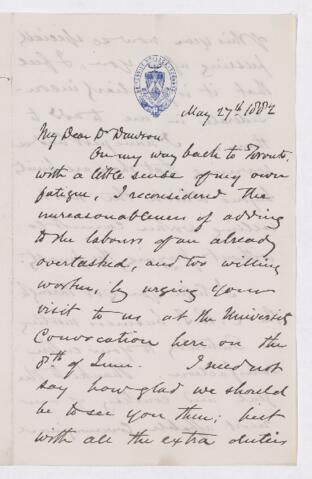 May 27th 1882
My Dear Dr Dawson
On my way back to Toronto,
with a little sense of my own
fatigue, I reconsidered the
unreasonableness of adding
to the labours of an already
overtasked, and too willing
worker, by urging your
visit to us at the University
Convocation here on the
8th of June. I need not
say how glad we should
be to see you then; but
with all the extra duties